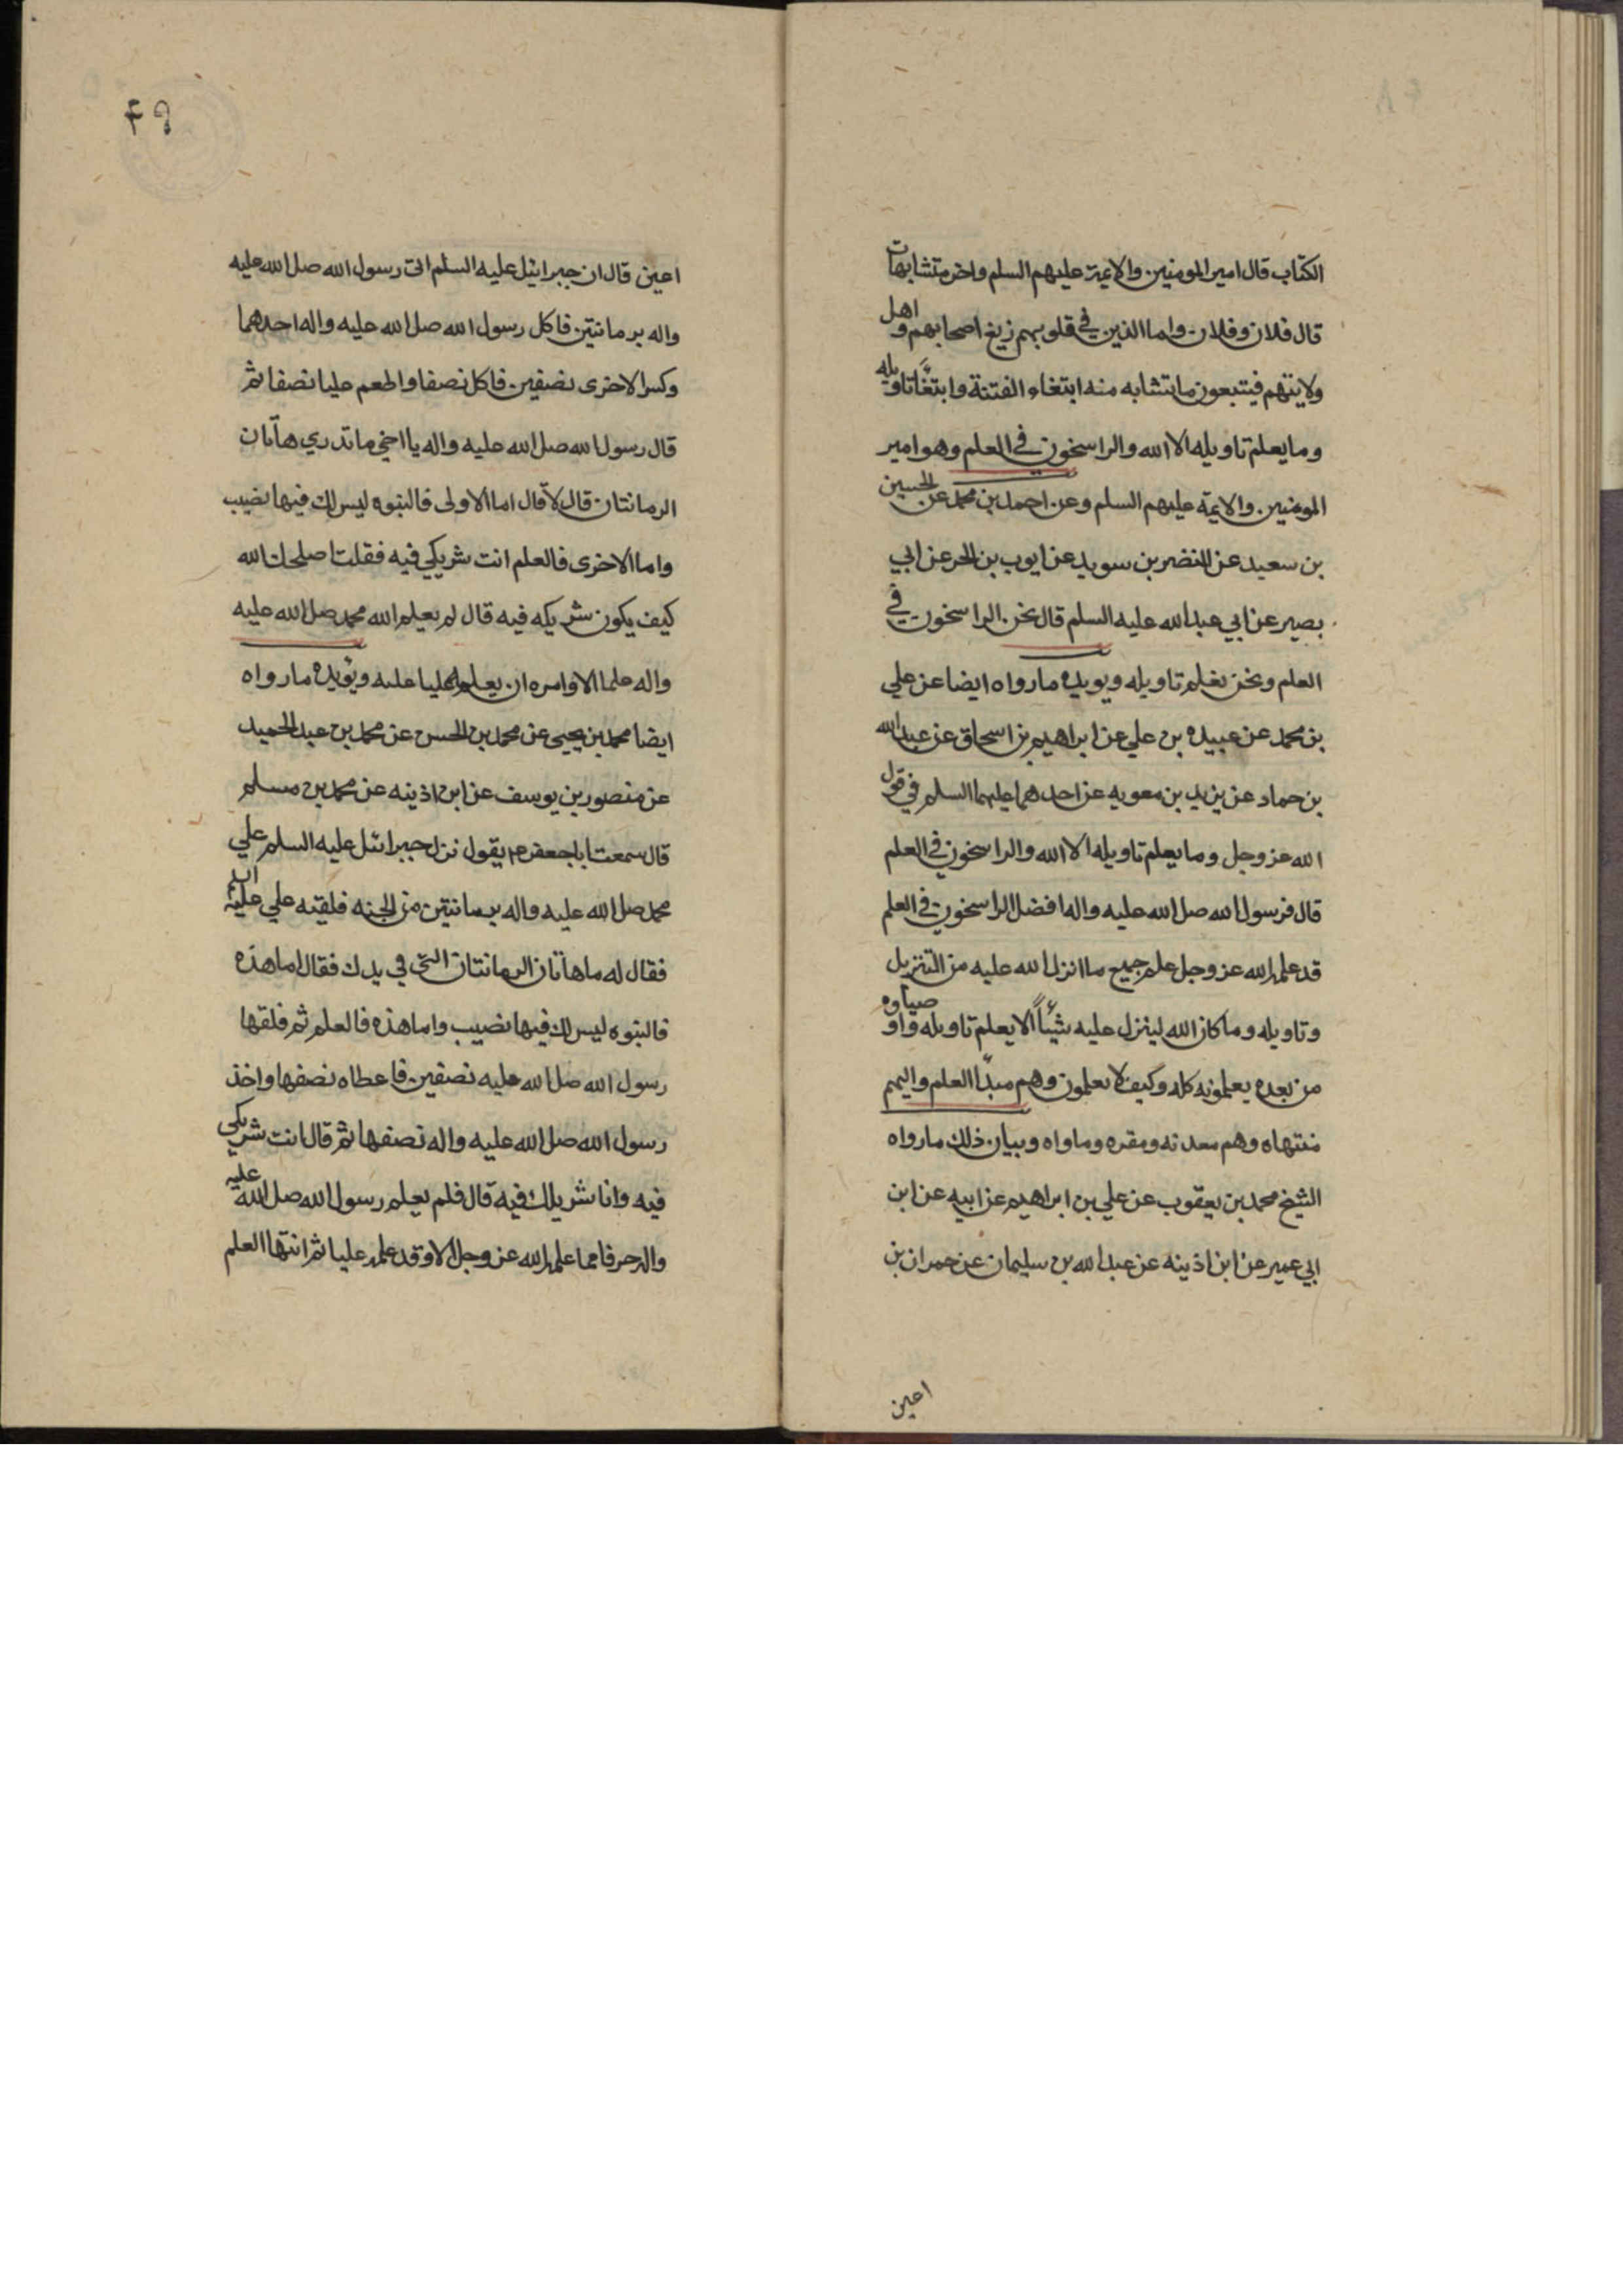 الكتاب قال امير المومنين والايمة عليهم السلم واخر متشابهات
قال فلان وفلان واما الذين في قلوبهم زيغ اصحابهم واهل
ولايتهم فيتبعون ما تشابه منه ابتغاء الفتنة وابتغاً تاويله
وما يعلم تاويله الا الله والراسخون في العلم وهو امير
المومنين والايمة عليهم السلم وعن احمد بن محمد عن الحسين
بن سعيد عن النضر بن سويد عن ايوب بن الحر عن ابي
بصير عن ابي عبد الله عليه السلم قال نحن الراسخون في
العلم ونحن نعلم تاويله ويويده ما رواه ايضا عن علي
بن محمد عن عبيده بن علي عن ابراهيم بن اسحاق عن عبد الله
بن حماد عن يزيد بن معويه عن احدهما عليهما السلم في قول
الله عز وجل وما يعلم تاويله الا الله والراسخون في العلم
قال فرسول الله صل الله عليه واله افضل الراسخون في العلم
قد علمه الله عز وجل علم جميع ما انزل الله عليه من التنزيل
وتاويله وما كان الله لينزل عليه شيئاً الا يعلم تاويله واوصياوه
من بعده يعلمونه كله وكيف لا يعلمون وهم مبدأ العلم واليهم
منتهاه وهم معدنه ومقره وماواه وبيان ذلك ما رواه
الشيخ محمد بن يعقوب عن علي بن ابراهيم عن ابيه عن ابن
ابي عمير عن ابن اذينه عن عبد الله بن سليمان عن حمران بن
اعين
۴۹
اعين قال ان جبرائيل عليه السلم اتى رسول الله صل الله عليه
واله برمانتين فاكل رسول الله صل الله عليه واله احدهما
وكسر الاخرى نصفين فاكل نصفا واطعم عليا نصفا ثم
قال رسول الله صل الله عليه واله يا اخي ما تدري هاتان
الرمانتان قال لا قال اما الاولى فالنبوه ليس لك فيها نصيب
واما الاخرى فالعلم انت شريكي فيه فقلت اصلحك الله
كيف يكون شريكه فيه قال لم يعلم الله محمد صل الله عليه
واله علما الا وامره ان يعلمه عليا عليه ويؤيده ما رواه
ايضا محمد بن يحيى عن محمد بن الحسن عن محمد بن عبد الحميد
عن منصور بن يوسف عن ابن اذينه عن محمد بن مسلم
قال سمعت ابا جعفر ع م يقول نزل جبرائيل عليه السلم علي
محمد صل الله عليه واله برمانتين من الجنه فلقيه علي عليه
فقال له ما هاتان الرمانتان التي في يدك فقال اما هذه
فالنبوه ليس لك فيها نصيب واما هذه فالعلم ثم فلقها
رسول الله صل الله عليه نصفين فاعطاه نصفها واخذ
رسول الله صل الله عليه واله نصفها ثم قال انت شريكي
فيه وانا شريكك فيه قال فلم يعلم رسول الله صل الله عليه
واله حرفا مما علمه الله عز وجل الا وقد علمه عليا ثم انتها العلم